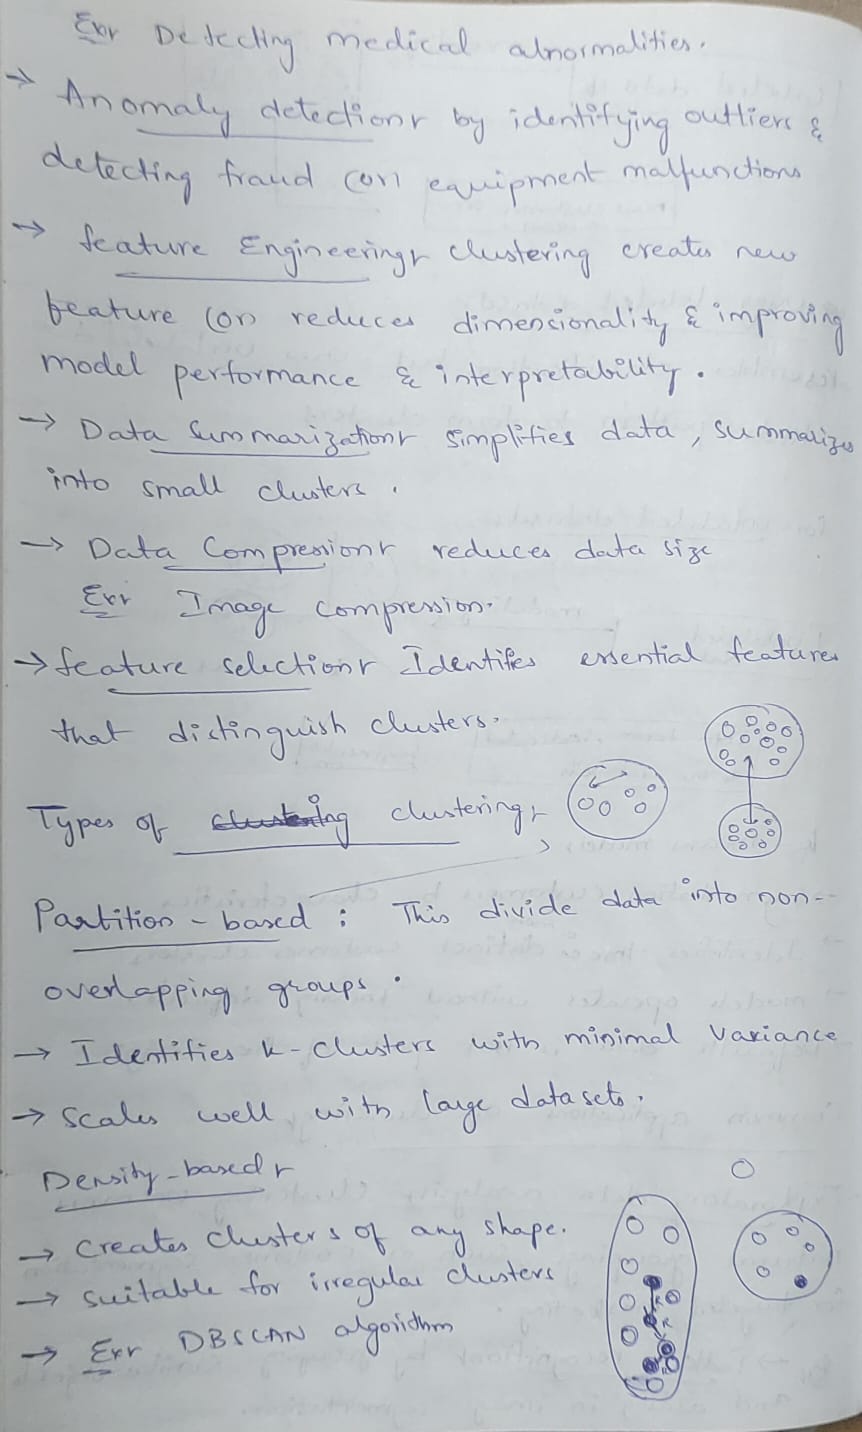 Ex:- Detecting medical abnormalities.
→ Anomaly detection:- by identifying outliers &
detecting fraud (or) equipment malfunctions
→ feature Engineering:- clustering creates new
feature (or) reduces dimensionality & improving
model performance & interpretability.
→ Data Summarization:- simplifies data, summarizes
into small clusters.
→ Data Compression:- reduces data size
Ex:- Image compression.
→ feature selection:- Identifies essential features
that distinguish clusters.
Types of clustering clustering:-
Partition-based : This divide data into non-
overlapping groups.
→ Identifies k-clusters with minimal variance
→ Scales well with large datasets.
Density-based:-
→ creates clusters of any shape.
→ suitable for irregular clusters
→ Ex:- DBSCAN algorithm